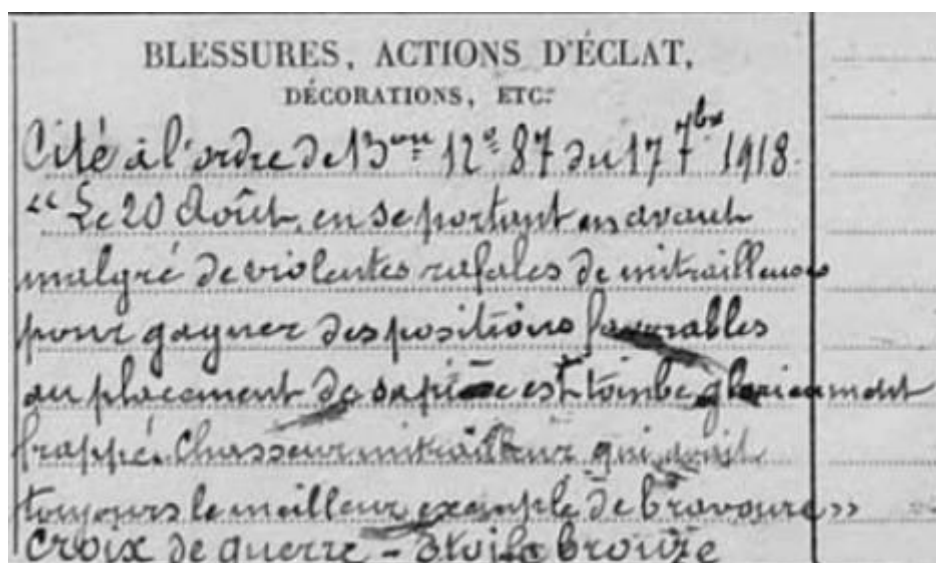 BLESSURES, ACTIONS D'ÉCLAT,
DÉCORATIONS, ETC.
Cité à l'ordre de 13ème 12° 87 du 17 7bre 1918.
"Le 20 Août, en se portant en avant
malgré de violentes rafales de mitrailleuses
pour gagner des positions favorables
au placement de sa pièce est tombé glorieusement
frappé. Chasseur mitrailleur qui
toujours le meilleur exemple de bravoure"
Croix de guerre - étoile bronze